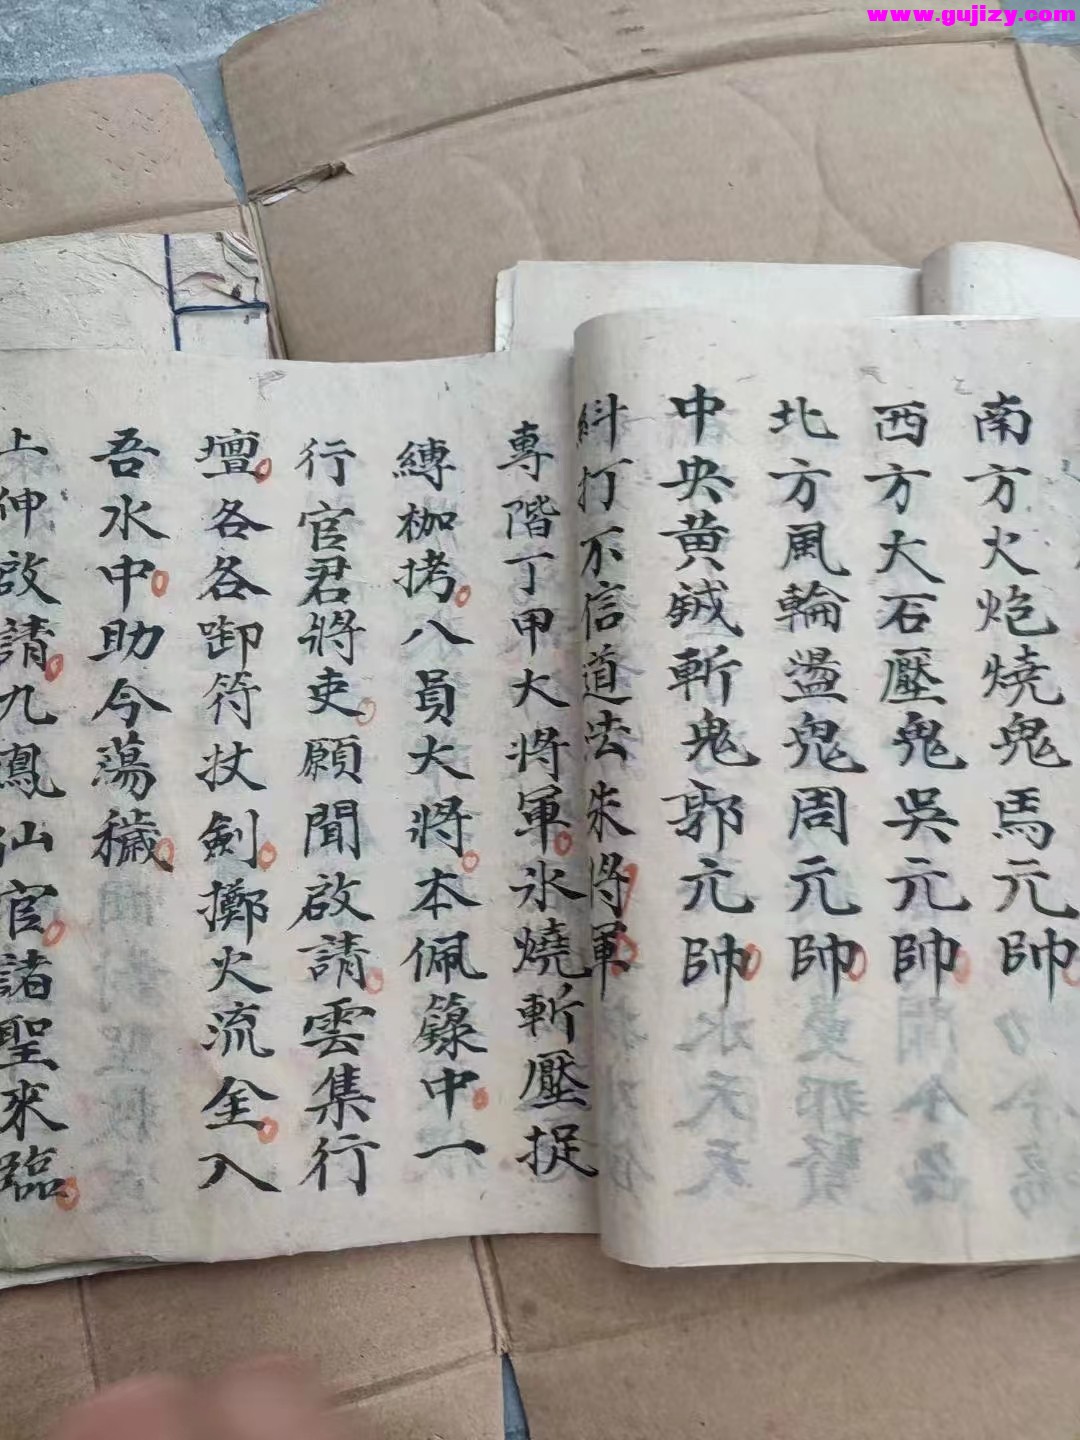 www.gujizy.com
南方火炮燒鬼馬元帥
西方大石壓鬼吳元帥
北方風輪盪鬼周元帥
中央黄鉞斬鬼郭元帥
糾打不信道法朱將軍
專階丁甲大將軍氷燒斬壓捉
縛枷拷八員大將本佩籙中一
行官君將吏願聞啟請雲集行
壇各各卸符杖劍擲火流金入
吾水中助今蕩穢
上伸啟請九鳳仙官諸聖來臨